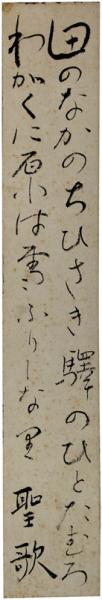 田のなかのちひさき驛のひとたむろ
わがくには雪ふりしなり 聖歌